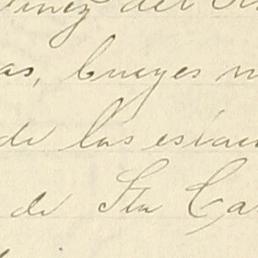 del
as, bueyes
de las estac
de Sta Ca